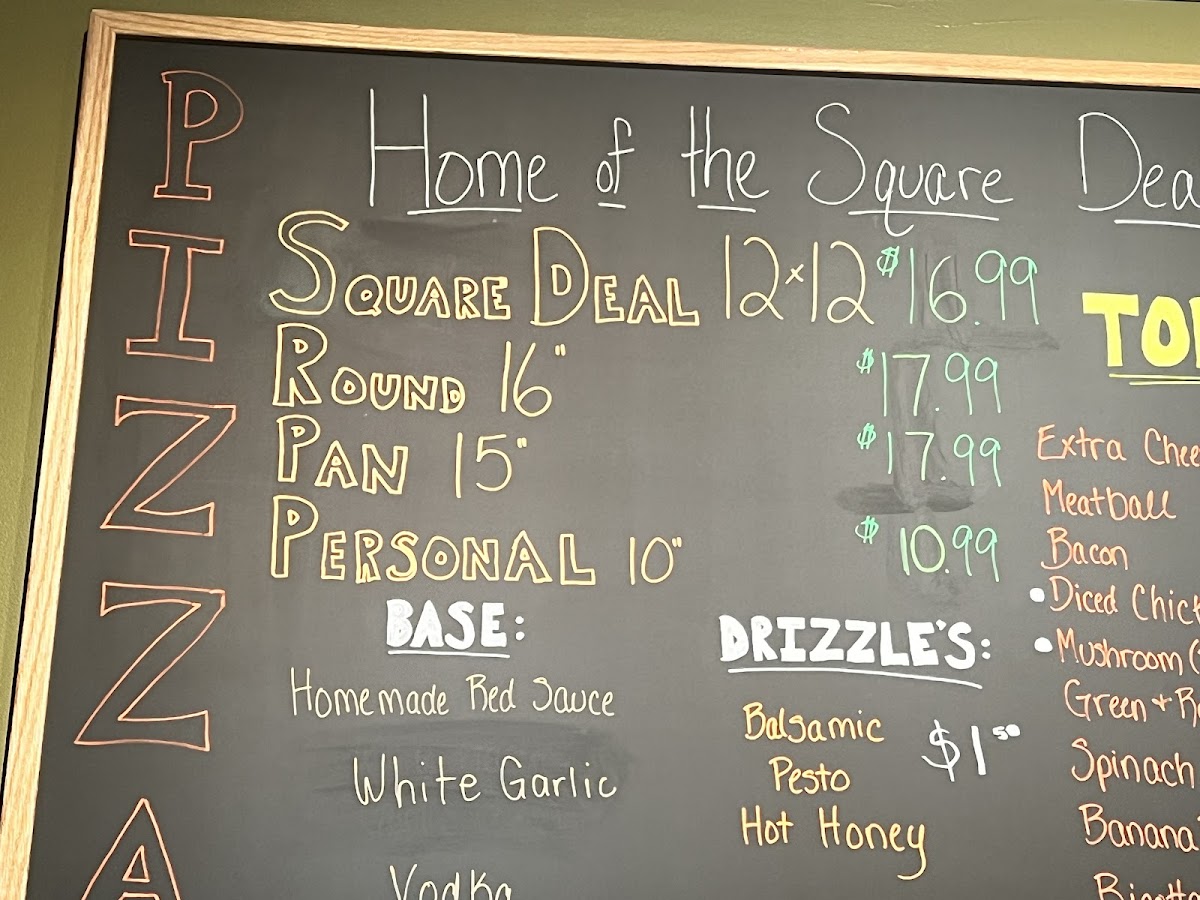 PIZZA
Home of the Square Dea
SQUARE DEAL 12x12 $16.99
ROUND 16" $17.99
PAN 15" $17.99
PERSONAL 10" $10.99
BASE:
Homemade Red Sauce
White Garlic
Vodka
DRIZZLE'S:
Balsamic
Pesto
Hot Honey
$1.50
TO
Extra Chee
Meatball
Bacon
•Diced Chick
•Mushroom (
Green + Re
Spinach
Banana
Ricotta